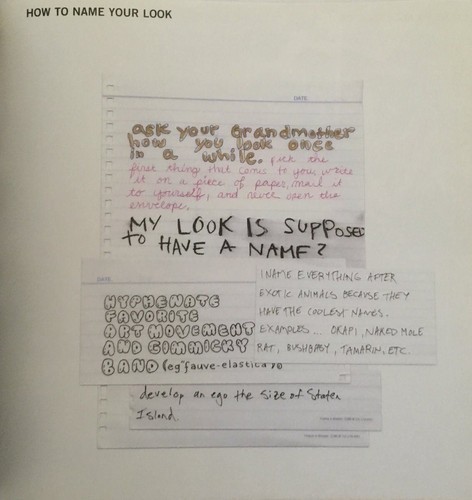 HOW TO NAME YOUR LOOK
DATE
ask your grandmother
how you look once
in a while. Pick the
first thing that comes to you, write
it on a piece of paper, mail it
to yourself, and never open the
envelope.
MY LOOK IS SUPPOSED
to HAVE A NAME?
DATE
HYPHENATE
FAVORITE
ART MOVEMENT
AND GIMMICKY
BAND (eg "fauve-elastica")
I NAME EVERYTHING AFTER
EXOTIC ANIMALS BECAUSE THEY
HAVE THE COOLEST NAMES.
EXAMPLES... OKAPI, NAKED MOLE
RAT, BUSHBABY, TAMARIN, ETC.
develop an ego the size of Staten
Island.